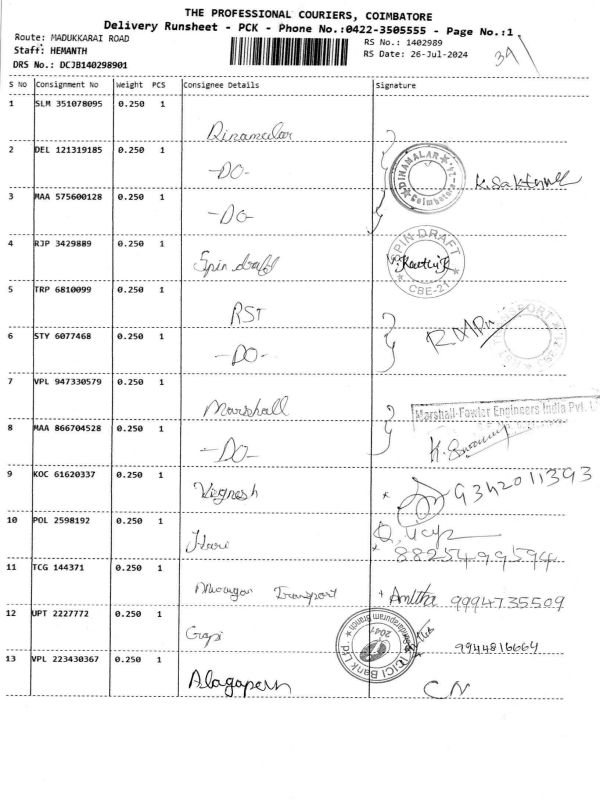 THE PROFESSIONAL COURIERS, COIMBATORE
Delivery Runsheet - PCK - Phone No.:0422-3505555 - Page No.:1
Route: MADUKKARAI ROAD
RS No.: 1402989
Staff: HEMANTH
RS Date: 26-Jul-2024
DRS No.: DCJB140298901
S No Consignment No Weight PCS Consignee Details Signature
1 SLM 351078095 0.250 1 Dinamalar
2 DEL 121319185 0.250 1 -DO-
DINAMALAR
Coimbatore
3 MAA 575600128 0.250 1 -DO-
4 RJP 3429889 0.250 1 Spin draft
SPIN DRAFT
CBE-21
5 TRP 6810099 0.250 1 RST
6 STY 6077468 0.250 1 -DO-
7 VPL 947330579 0.250 1 Marshall
Marshall-Fowler Engineers India Pvt.
8 MAA 866704528 0.250 1 -DO-
9 KOC 61620337 0.250 1 Vignesh 9342011393
10 POL 2598192 0.250 1 Hari
8825499594
11 TCG 144371 0.250 1 Transport Anitha 9994735509
12 UPT 2227772 0.250 1 Gopi 9944816664
ICICI Bank
2041
13 VPL 223430367 0.250 1 CN